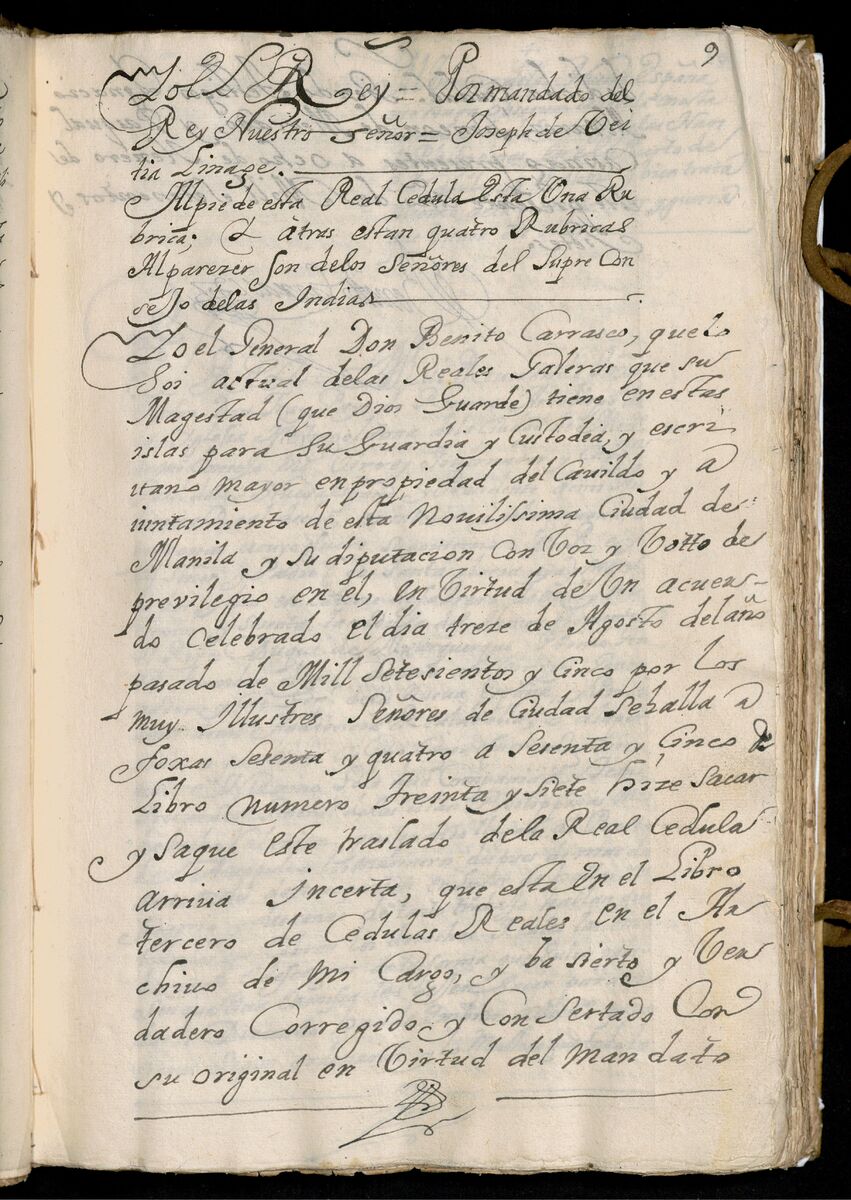 9
Yo el Rey = Por mandado del
Rey Nuestro Señor = Joseph de Vei
tia Linage.
Al pie de esta Real Cedula esta Una Ru
brica; Y atras estan quatro Rubricas
Al parezer son delos Señores del Supre Con
sejo delas Indias
Yo el General Don Benito Carrasco, que lo
soi actual delas Reales Galeras que su
Magestad (que Dios Guarde) tiene en estas
islas para su Guardia y Custodia, y escri
uano mayor en propiedad del Cauildo y a
iuntamiento de esta Novilissima Ciudad de
Manila y su diputacion con Voz y Votto de
previlegio en el, en Virtud de Un acuer-
do celebrado el dia treze de Agosto del año
pasado de Mill Setesientos y Cinco por los
muy Illustres Señores de Ciudad se halla a
foxas sesenta y quatro a sesenta y Cinco de
Libro numero treinta y siete hize sacar
y saque este traslado dela Real Cedula
arriua incerta, que esta en el Libro
tercero de Cedulas Reales en el Ar
chiuo de mi Cargo, y ba sierto y Ver
dadero Corregido, y Consertado Con
su original en Virtud del mandato